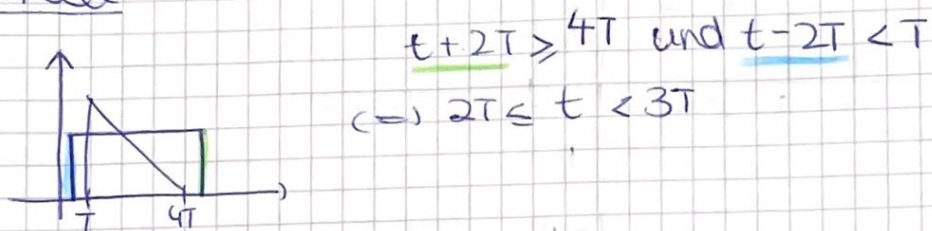 t+2T ≥ 4T und t-2T < T
(=) 2T ≤ t < 3T
T 4T